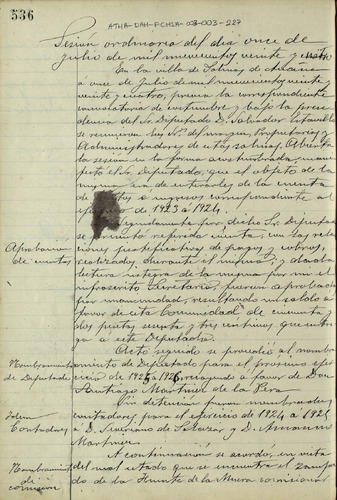 536
ATHA-DAH-FCHSA-03-003-227
Sesión ordinaria del día once de
julio de mil novecientos veinte y cuatro
En la villa de Salinas de Añana
a once de Julio de mil novecientos veinte y
veinte y cuatro, previa la correspondiente
convocatoria de costumbre y bajo la presi-
dencia del Sr. Diputado D. Salvador
se reunieron los Srs. del margen, Propietarios y
Administradores de estas salinas. Abierta
la sesión en la forma acostumbrada manif-
estó el Sr. Diputado, que el objeto de la
misma era de enterarles de la cuenta
de gastos e ingresos correspondiente al
de 1923 á 1924.
Seguidamente por dicho Sr. Diputado
se presentó referida cuenta, con las rela-
ciones justificativas de pagos y cobros,
realizados durante el mismo; y dada
lectura íntegra de la misma por mí el
infrascrito Secretario, fueron aprobadas
por unanimidad, resultando un saldo a
favor de esta Comunidad de cincuenta
dos pesetas sesenta y tres centimos que
a este Diputado.
Aprobación
de cuentas
Acto seguido se procedió al nombra-
miento de Diputado para el proximo ejer-
cicio de 1925 á 1926, recayendo a favor de Don
Santiago Martinez de la Pera
Nombramiento
de Diputado
Sin detención fueron nombrados
contadores para el ejercicio de 1924 a 1925
á D. Severiano de Salazar y D. Amancio
Martinez.
Idem
Contadores
A continuación se acordó, en vista
del mal estado que se encuentra el
de la Fuente de la Muera comisionar
Nombramiento
de comisión